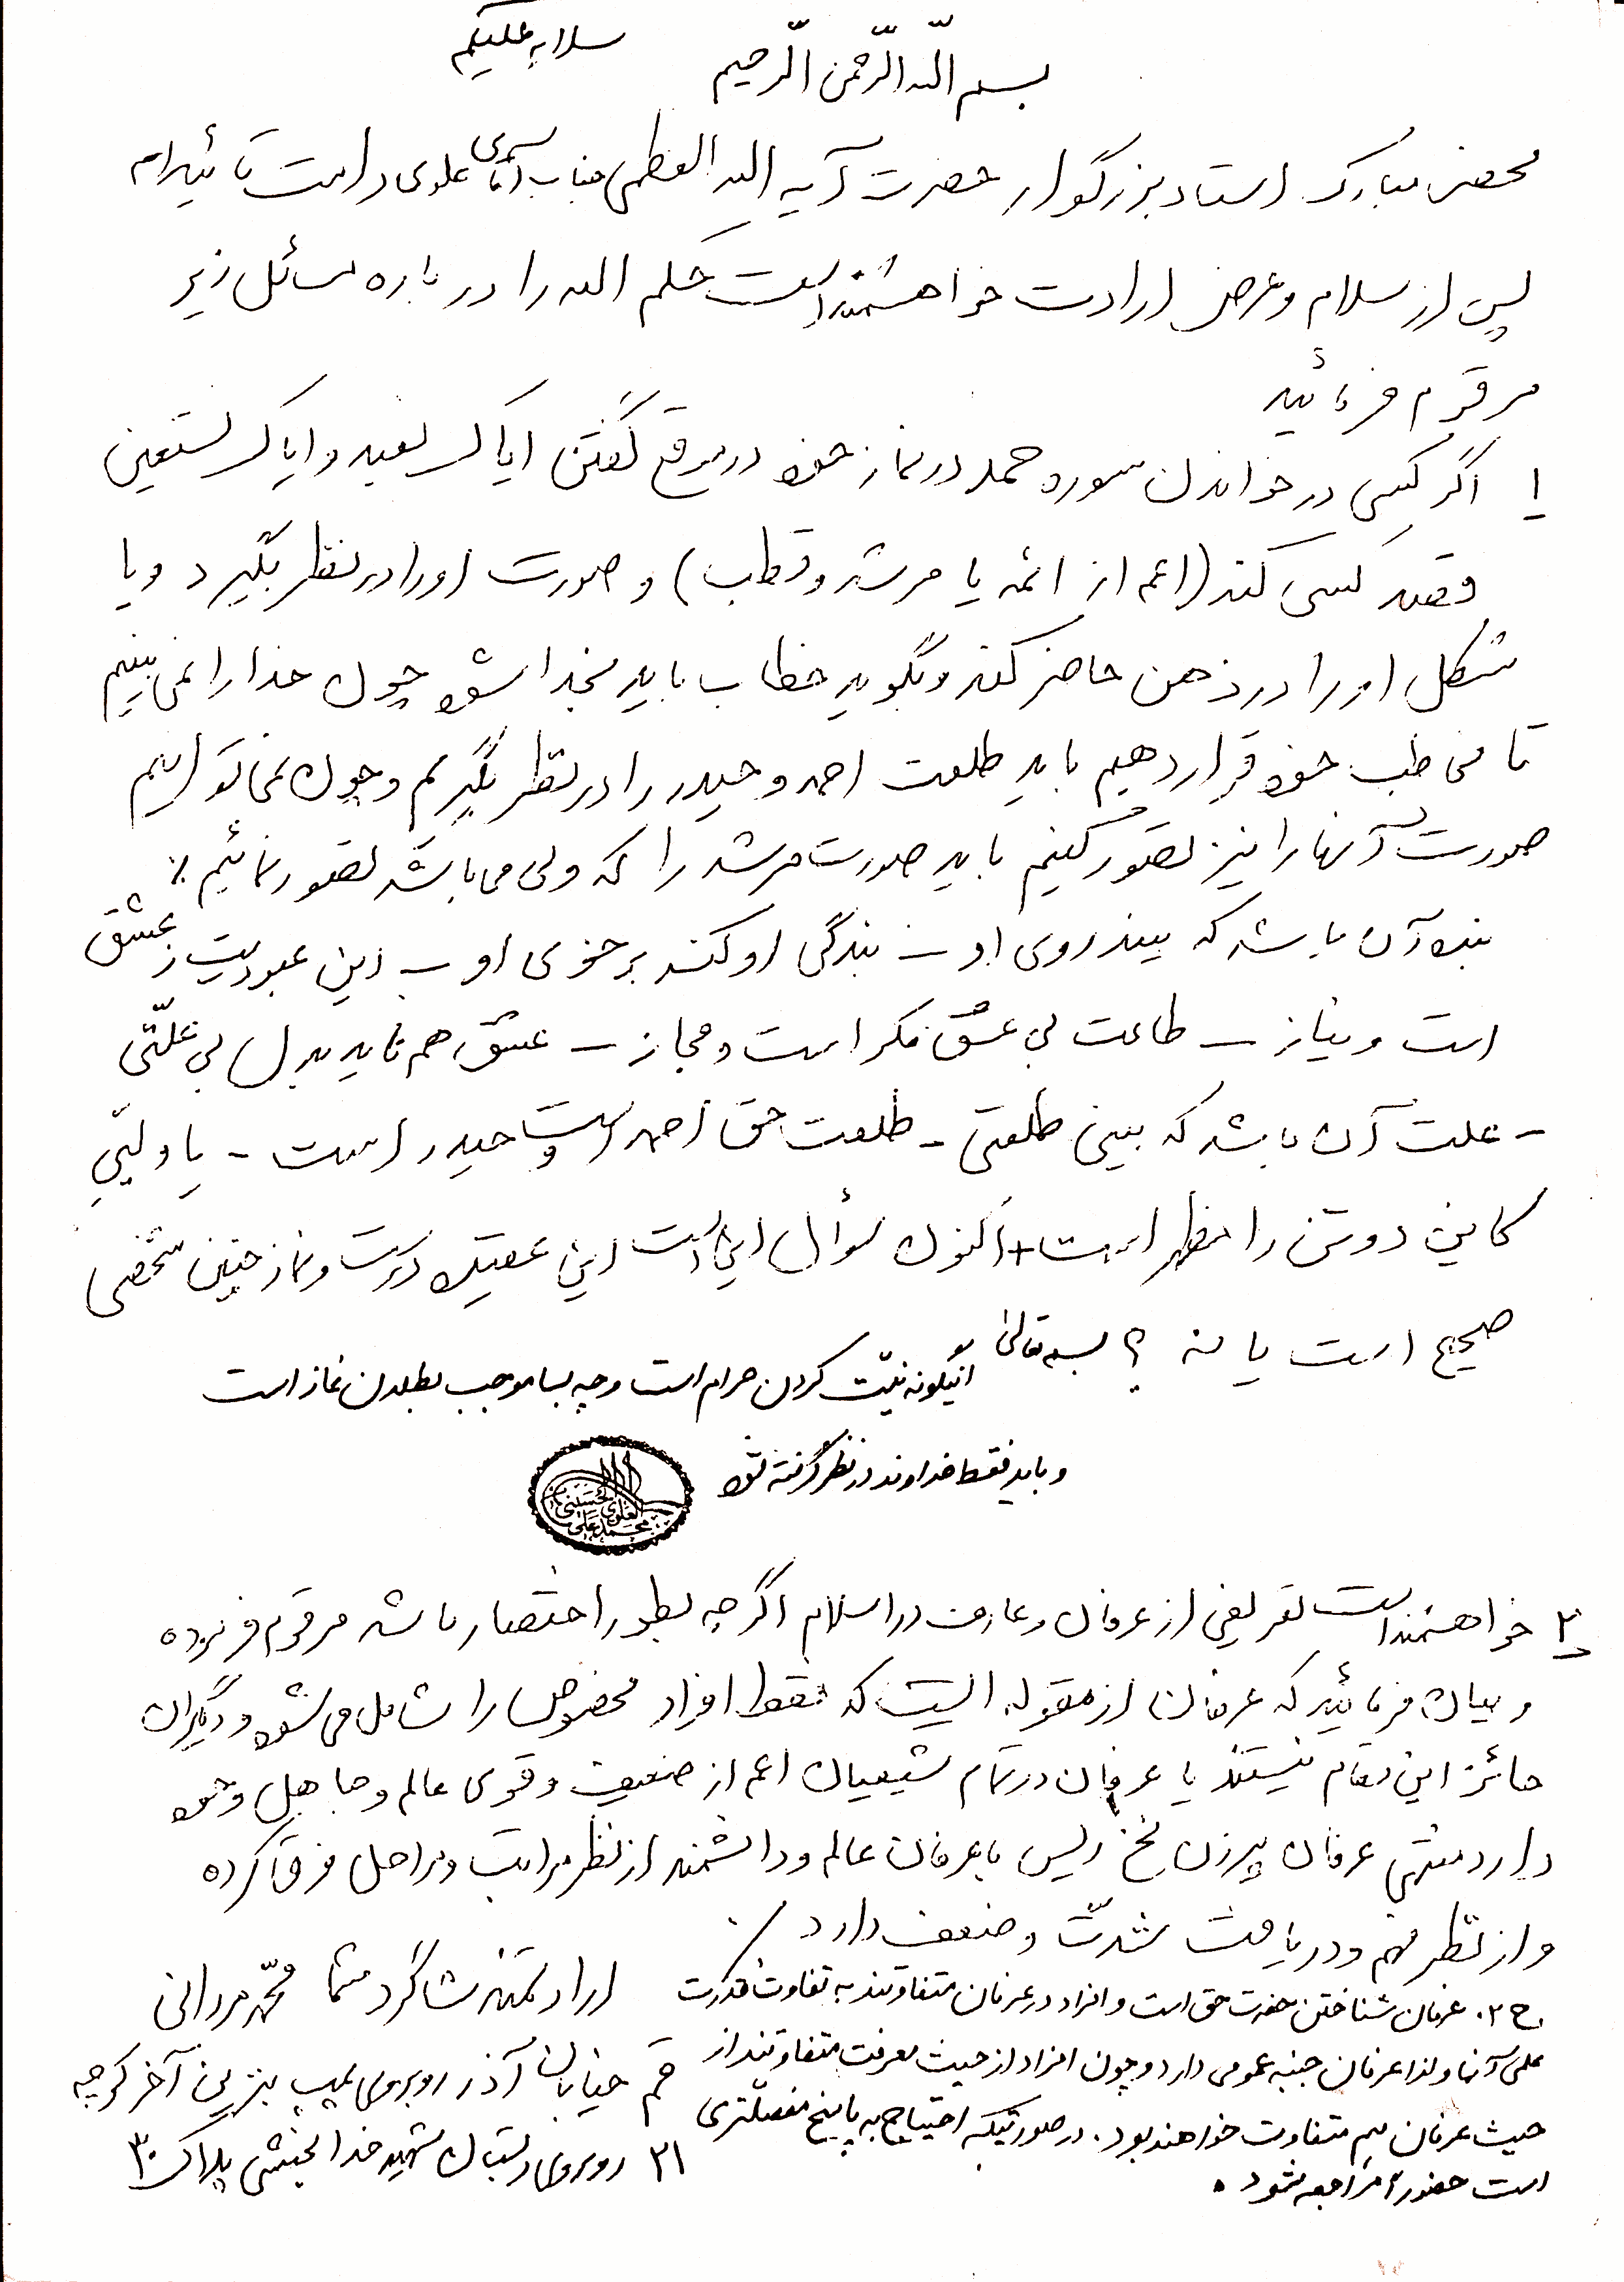 سلام علیکم
بسم الله الرّحمن الرّحیم
محضر مبارک استاد بزرگوار حضرت آیه الله العظمی جناب آقای علوی دامت تائیداته
پس از سلام و عرض ارادت خواهشمند است حکم الله را درباره مسائل زیر
مرقوم فرمائید
۱ اگر کسی در خواندن سوره حمد در نماز خود در موقع گفتن ایاک نعبد و ایاک نستعین
قصد کسی کند (اعم از ائمه یا مرشد و قطب) و صورت او را در نظر بگیرد و یا
شکل او را در ذهن حاضر کند و بگوید خطاب باید بخدا شود چون خدا را نمی بینیم
تا مخاطب خود قرار دهیم باید طلعت احمد و حیدر را در نظر بگیریم و چون نمی توانیم
صورت آنها را نیز تصور کنیم باید صورت مرشد را که ولی می باشد تصور نمائیم ٪
بنده آن باشد که بیند روی او – بندگی او کند بر خوی او – این عبودیت ز عشق
است و نیاز – طاعت بی عشق مکر است و مجاز – عشق هم ناید بدل بی علّتی
– علت آن باشد که بینی طلعتی – طلعت حق احمد است و حیدر است – یا ولیّی
کاین دو تن را مظهر است + اکنون سؤال این است این عقیده درست و نماز چنین شخصی
صحیح است یا نه ؟ بسمه تعالی
اینگونه نیّت کردن حرام است و چه بسا موجب بطلان نماز است
و باید فقط خداوند در نظر گرفته شود
العلوی الحسینی
محمد علی
۲ خواهشمند است تعریفی از عرفان و عارف در اسلام اگر چه بطور اختصار باشد مرقوم فرموده
و بیان فرمائید که عرفان از مقوله ایست که فقط افراد مخصوص را شامل می شود و دیگران
حائز این مقام نیستند یا عرفان در تمام شیعیان اعم از ضعیف و قوی عالم و جاهل وجود
دارد منتهی عرفان پیرزن نخ ریس با عرفان عالم و دانشمند از نظر مراتب و مراحل فرق کرده
و از نظر فهم و دریافت شدّت و ضعف دارد ٪
ارادتمند شاگرد شما محمّد مردانی
قم خیابان آذر روبروی پمپ بنزین آخر کوچه
۳۱ روبروی دبستان شهید خدابخشی پلاک ۳۰
ج ۲ . عرفان شناختن حضرت حق است و افراد در عرفان متفاوتند به تفاوت قدرت
علمی آنها و لذا عرفان جنبه عمومی دارد و چون افراد از حیث معرفت متفاوتند از
حیث عرفان هم متفاوت خواهند بود . در صورتیکه احتیاج به پاسخ مفصّلتری
است حضوراً مراجعه شود .